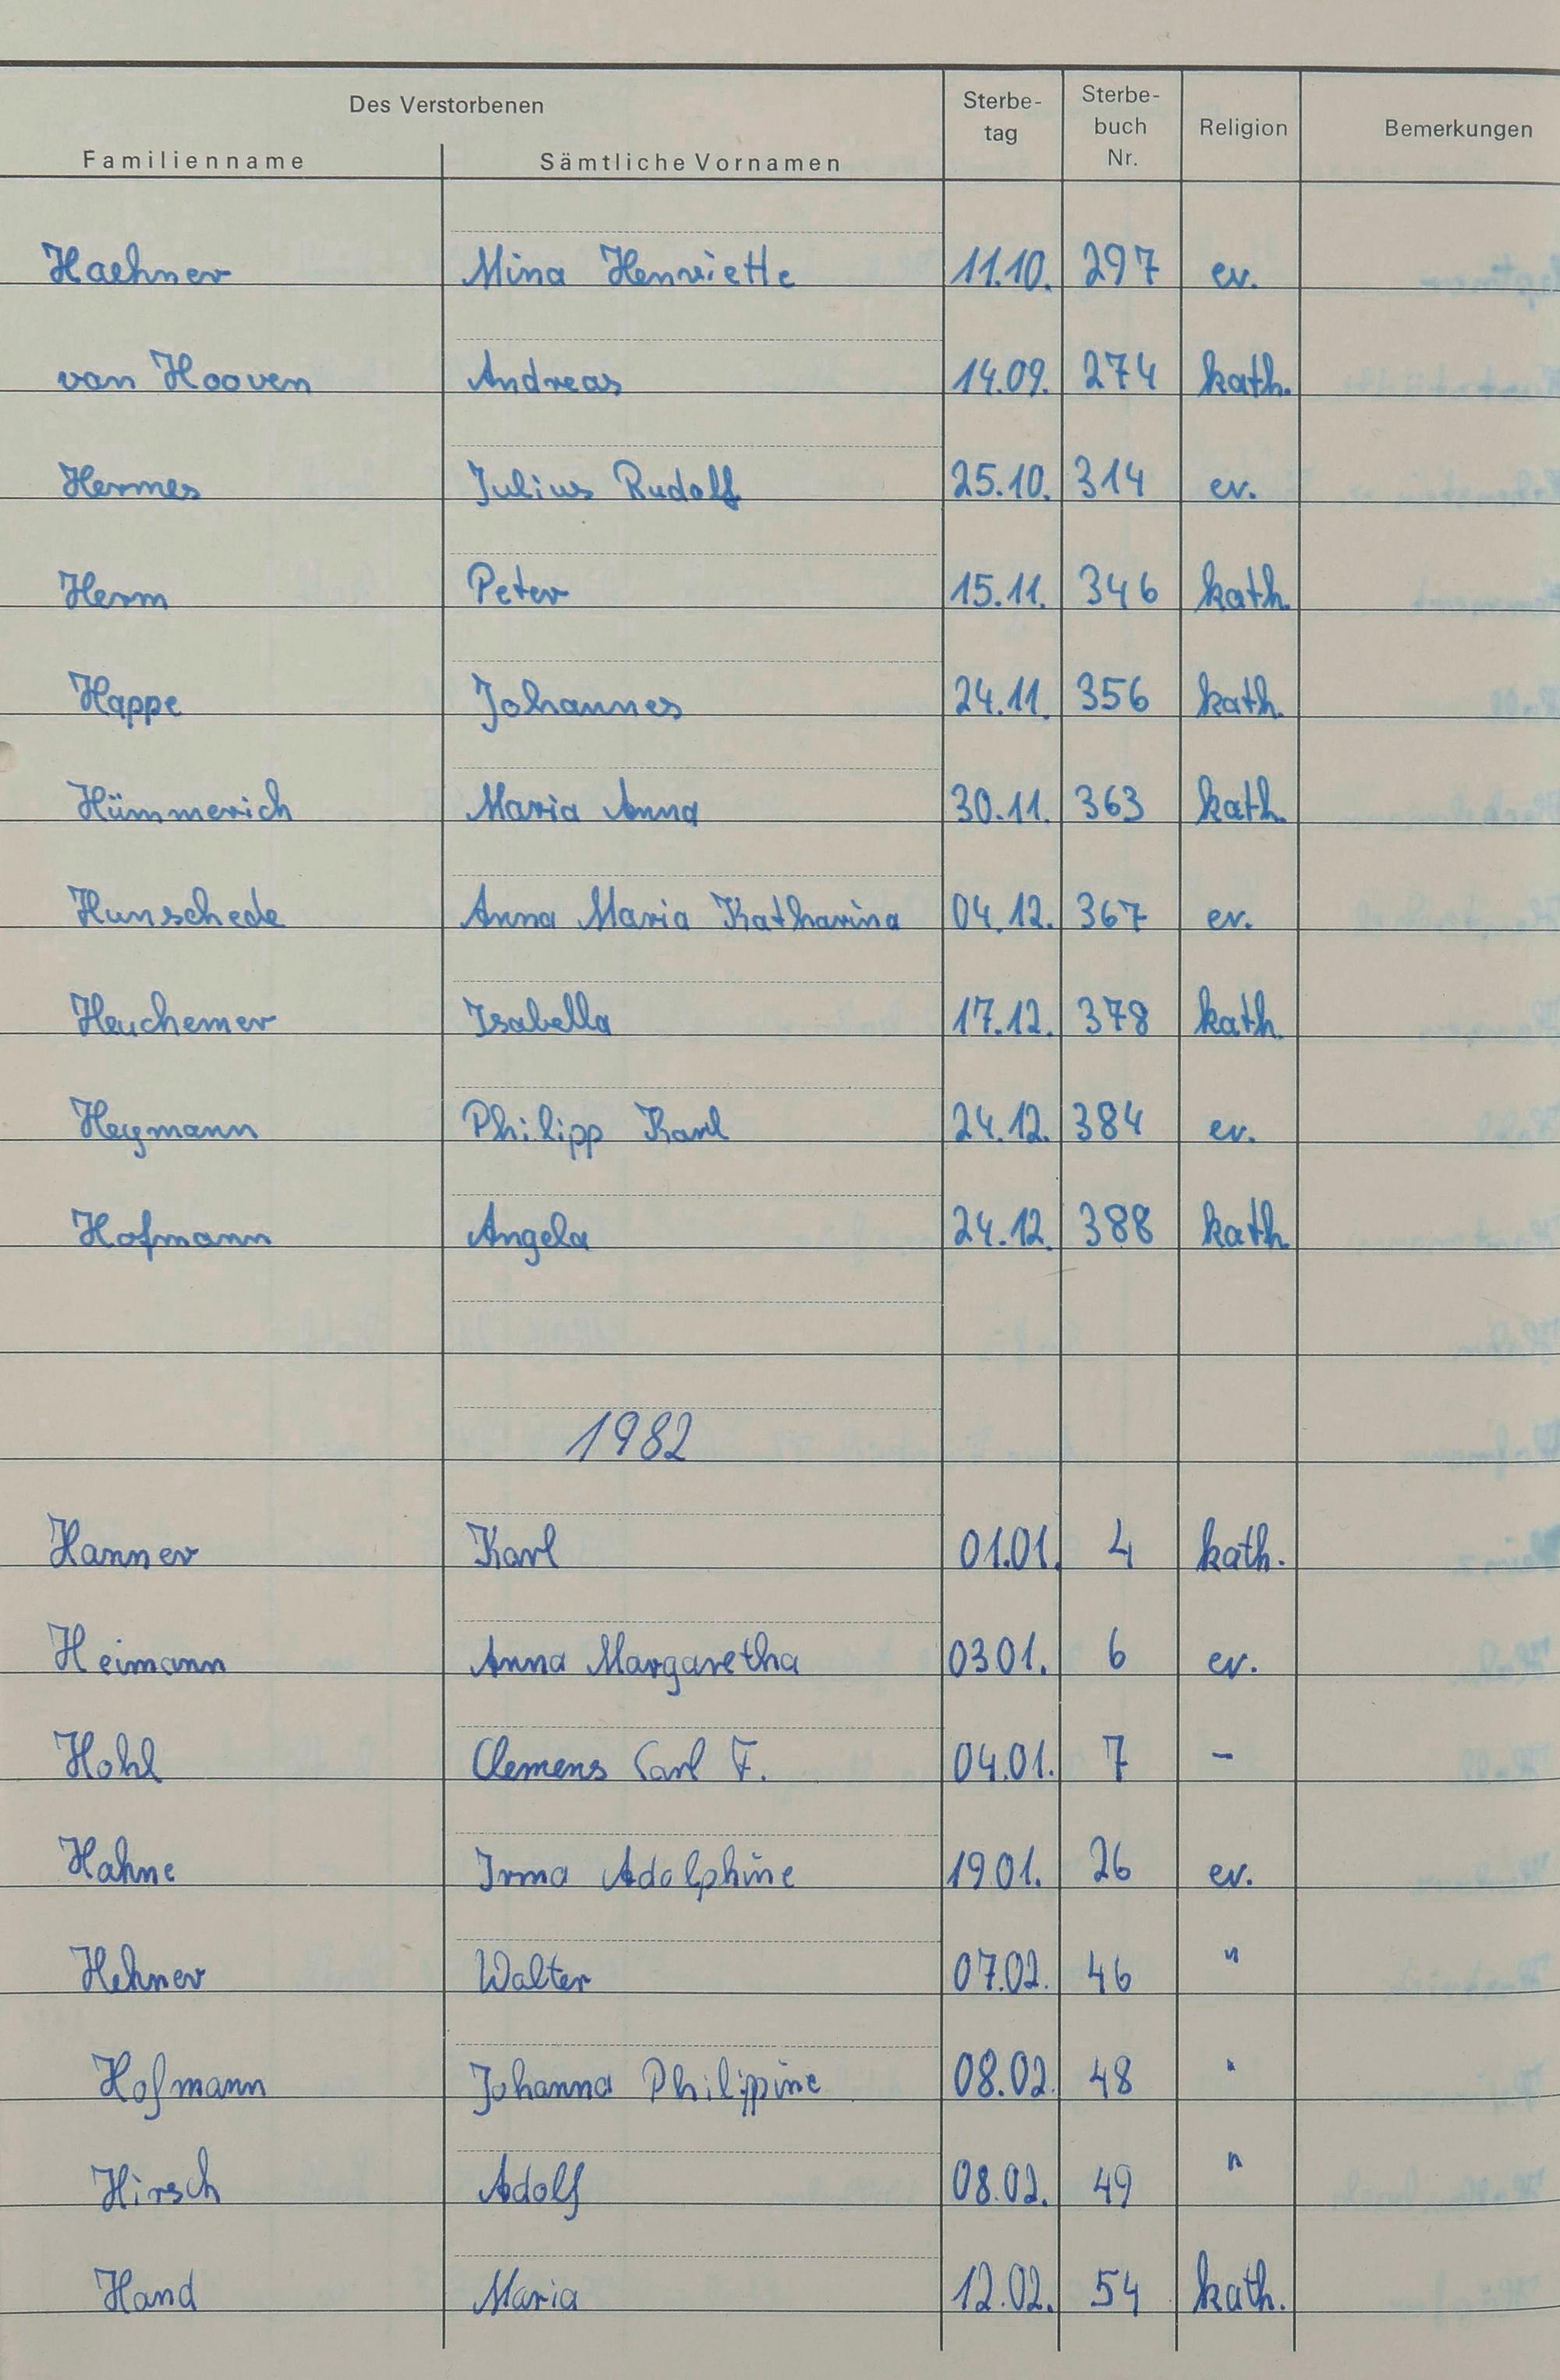 Des Verstorbenen
Familienname Sämtliche Vornamen Sterbe-tag Sterbe-buch Nr. Religion Bemerkungen
Haehner Mina Henriette 11.10. 297 ev.
van Hooven Andreas 14.09. 274 kath.
Hermes Julius Rudolf 25.10. 314 ev.
Herm Peter 15.11. 346 kath.
Happe Johannes 24.11. 356 kath.
Hümmerich Maria Anna 30.11. 363 kath.
Hunschede Anna Maria Katharina 04.12. 367 ev.
Heuchemer Isabella 17.12. 378 kath.
Heymann Philipp Karl 24.12. 384 ev.
Hofmann Angela 24.12. 388 kath.
1982
Hanner Karl 01.01. 4 kath.
Heimann Anna Margaretha 03.01. 6 ev.
Hohl Clemens Carl F. 04.01. 7 –
Hahne Irma Adolphine 19.01. 26 ev.
Hehner Walter 07.02. 46 "
Hofmann Johanna Philippine 08.02. 48 "
Hirsch Adolf 08.02. 49 "
Hand Maria 12.02. 54 kath.